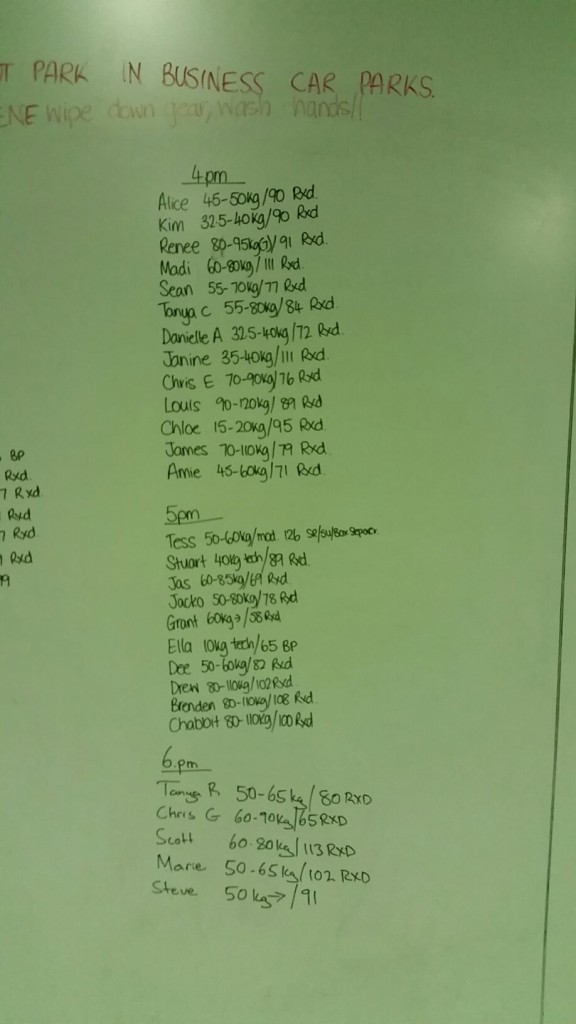 T PARK IN BUSINESS CAR PARKS.
ENE wipe down gear, wash hands!!
4pm
Alice 45-50kg/90 Rxd.
Kim 32.5-40kg/90 Rxd
Renee 80-95kg(J)/91 Rxd.
Madi 60-80kg/111 Rxd.
Sean 55-70kg/77 Rxd
Tanya C 55-80kg/84 Rxd.
Danielle A 32.5-40kg/72 Rxd.
Janine 35-40kg/111 Rxd.
Chris E 70-90kg/76 Rxd
Louis 90-120kg/89 Rxd
Chloe 15-20kg/95 Rxd.
James 70-110kg/79 Rxd.
Amie 45-60kg/71 Rxd.
BP
Rxd.
7 Rxd
Rxd
7 Rxd
Rxd
5pm
Tess 50-60kg/mod. 126 SP/SU/Box
Stuart 40kg tech/89 Rxd.
Jas 60-85kg/69 Rxd.
Jacko 50-80kg/78 Rxd
Grant 60kg→/58 Rxd
Ella 10kg tech/65 BP
Dee 50-60kg/82 Rxd
Drew 80-110kg/102 Rxd.
Brenden 80-110kg/108 Rxd.
Chabbit 80-110kg/100 Rxd
6.pm
Tanya R 50-65kg/80 RXD
Chris G 60-90kg/65 RXD
Scott 60-80kg/113 RXD
Marie 50-65kg/102 RXD
Steve 50kg→/91